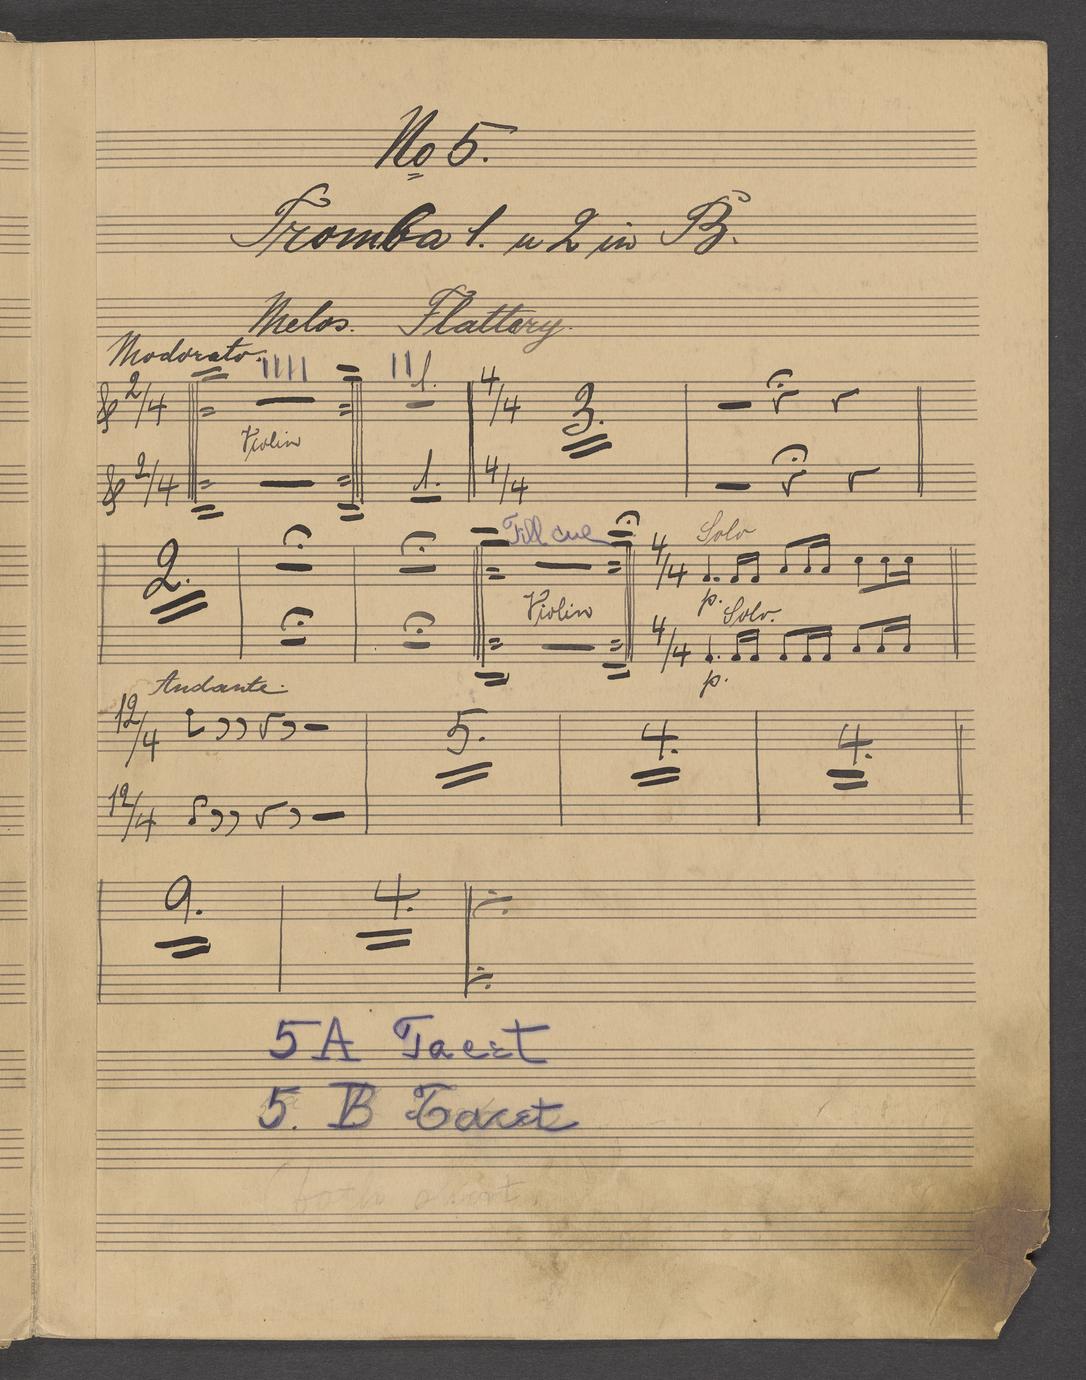 No 5.
Tromba 1. u 2 in B.
Melos. Flattery.
Moderato.
2/4 1. 4/4 3.
Violin
2/4 1. 4/4
2. Till cue 4/4 Solo
p.
Violin Solo.
4/4
p.
Andante.
12/4 5. 4. 4.
12/4
9. 4.
5A Tacet
5. B Tacet
(both short)